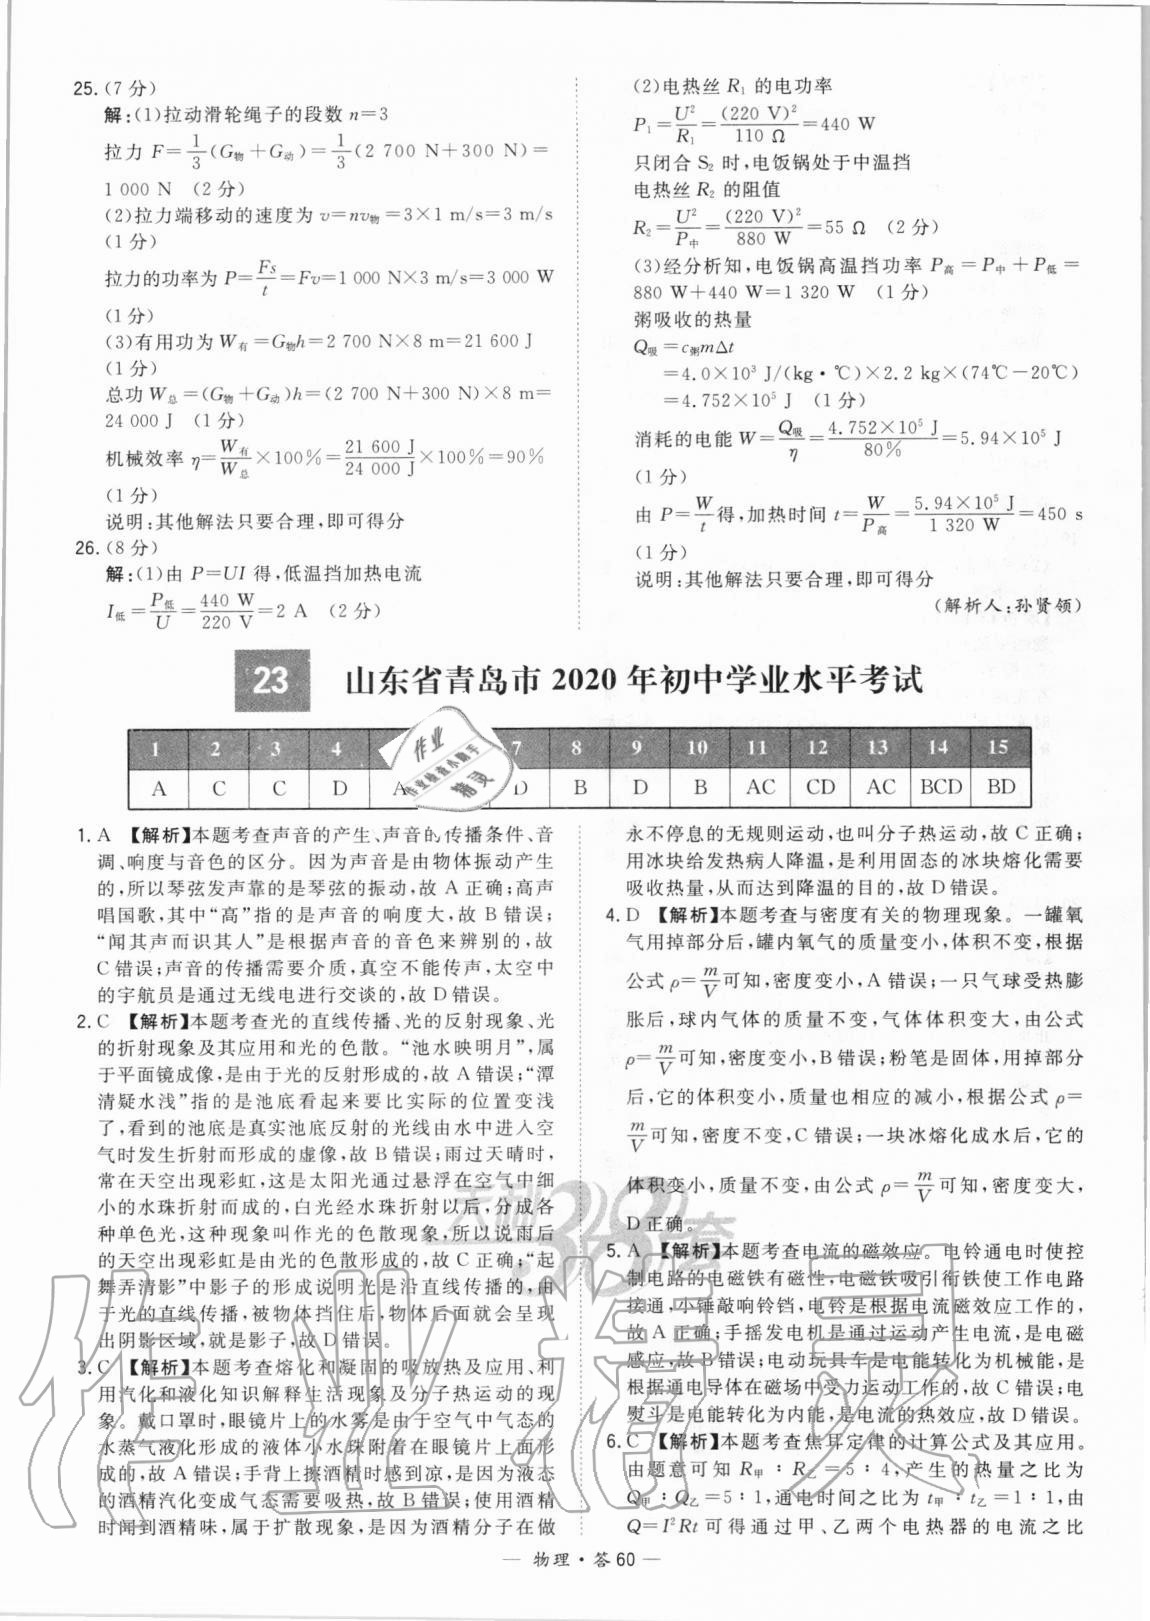 25.(7分)
解:(1)拉动滑轮绳子的段数 n=3
拉力 F=1/3(G物+G动)=1/3(2 700 N+300 N)=
1 000 N (2分)
(2)拉力端移动的速度为 v=nv物=3×1 m/s=3 m/s
(1分)
拉力的功率为 P=Fs/t=Fv=1 000 N×3 m/s=3 000 W
(1分)
(3)有用功为 W有=G物h=2 700 N×8 m=21 600 J
(1分)
总功 W总=(G物+G动)h=(2 700 N+300 N)×8 m=
24 000 J (1分)
机械效率 η=W有/W总×100%=21 600 J/24 000 J×100%=90%
(1分)
说明:其他解法只要合理,即可得分
26.(8分)
解:(1)由 P=UI 得,低温挡加热电流
I低=P低/U=440 W/220 V=2 A (2分)
(2)电热丝 R₁ 的电功率
P₁=U²/R₁=(220 V)²/110 Ω=440 W
只闭合 S₂ 时,电饭锅处于中温挡
电热丝 R₂ 的阻值
R₂=U²/P中=(220 V)²/880 W=55 Ω (2分)
(3)经分析知,电饭锅高温挡功率 P高=P中+P低=
880 W+440 W=1 320 W (1分)
粥吸收的热量
Q吸=c粥mΔt
=4.0×10³ J/(kg·℃)×2.2 kg×(74℃-20℃)
=4.752×10⁵ J (1分)
消耗的电能 W=Q吸/η=4.752×10⁵ J/80%=5.94×10⁵ J
(1分)
由 P=W/t得,加热时间 t=W/P高=5.94×10⁵ J/1 320 W=450 s
(1分)
说明:其他解法只要合理,即可得分
(解析人:孙贤领)
23 山东省青岛市 2020 年初中学业水平考试
1 2 3 4 7 8 9 10 11 12 13 14 15
A C C D A D B D B AC CD AC BCD BD
作业
作业检查小助手
精灵
1. A 【解析】本题考查声音的产生、声音的传播条件、音
调、响度与音色的区分。因为声音是由物体振动产生
的,所以琴弦发声靠的是琴弦的振动,故 A 正确;高声
唱国歌,其中“高”指的是声音的响度大,故 B 错误;
“闻其声而识其人”是根据声音的音色来辨别的,故
C 错误;声音的传播需要介质,真空不能传声,太空中
的宇航员是通过无线电进行交谈的,故 D 错误。
2. C 【解析】本题考查光的直线传播、光的反射现象、光
的折射现象及其应用和光的色散。“池水映明月”,属
于平面镜成像,是由于光的反射形成的,故 A 错误;“潭
清疑水浅”指的是池底看起来要比实际的位置变浅
了,看到的池底是真实池底反射的光线由水中进入空
气时发生折射而形成的虚像,故 B 错误;雨过天晴时,
常在天空出现彩虹,这是太阳光通过悬浮在空气中细
小的水珠折射而成的,白光经水珠折射以后,分成各
种单色光,这种现象叫作光的色散现象,所以说雨后
的天空出现彩虹是由光的色散形成的,故 C 正确;“起
舞弄清影”中影子的形成说明光是沿直线传播的,由
于光的直线传播,被物体挡住后,物体后面就会呈现
出阴影区域,就是影子,故 D 错误。
3. C 【解析】本题考查熔化和凝固的吸放热及应用、利
用汽化和液化知识解释生活现象及分子热运动的现
象。戴口罩时,眼镜片上的水雾是由于空气中气态的
水蒸气液化形成的液体小水珠附着在眼镜片上面形
成的,故 A 错误;手背上擦酒精时感到凉,是因为液态
的酒精汽化变成气态需要吸热,故 B 错误;使用酒精
时闻到酒精味,属于扩散现象,是因为酒精分子在做
永不停息的无规则运动,也叫分子热运动,故 C 正确;
用冰块给发热病人降温,是利用固态的冰块熔化需要
吸收热量,从而达到降温的目的,故 D 错误。
4. D 【解析】本题考查与密度有关的物理现象。一罐氧
气用掉部分后,罐内氧气的质量变小,体积不变,根据
公式 ρ=m/V可知,密度变小,A 错误;一只气球受热膨
胀后,球内气体的质量不变,气体体积变大,由公式
ρ=m/V可知,密度变小,B 错误;粉笔是固体,用掉部分
后,它的体积变小,质量也相应的减小,根据公式 ρ=
m/V可知,密度不变,C 错误;一块冰熔化成水后,它的
体积变小,质量不变,由公式 ρ=m/V可知,密度变大,
D 正确。
5. A 【解析】本题考查电流的磁效应。电铃通电时使控
制电路的电磁铁有磁性,电磁铁吸引衔铁使工作电路
接通,小锤敲响铃铛,电铃是根据电流磁效应工作的,
故 A 正确;手摇发电机是通过运动产生电流,是电磁
感应,故 B 错误;电动玩具车是电能转化为机械能,是
根据通电导体在磁场中受力运动工作的,故 C 错误;电
熨斗是电能转化为内能,是电流的热效应,故 D 错误。
6. C 【解析】本题考查焦耳定律的计算公式及其应用。
由题意可知 R甲∶R乙=5∶4,产生的热量之比为
Q甲∶Q乙=5∶1,通电时间之比为 t甲∶t乙=1∶1,由
Q=I²Rt 可得通过甲、乙两个电热器的电流之比
天利38套
作业精灵
— 物理·答 60 —